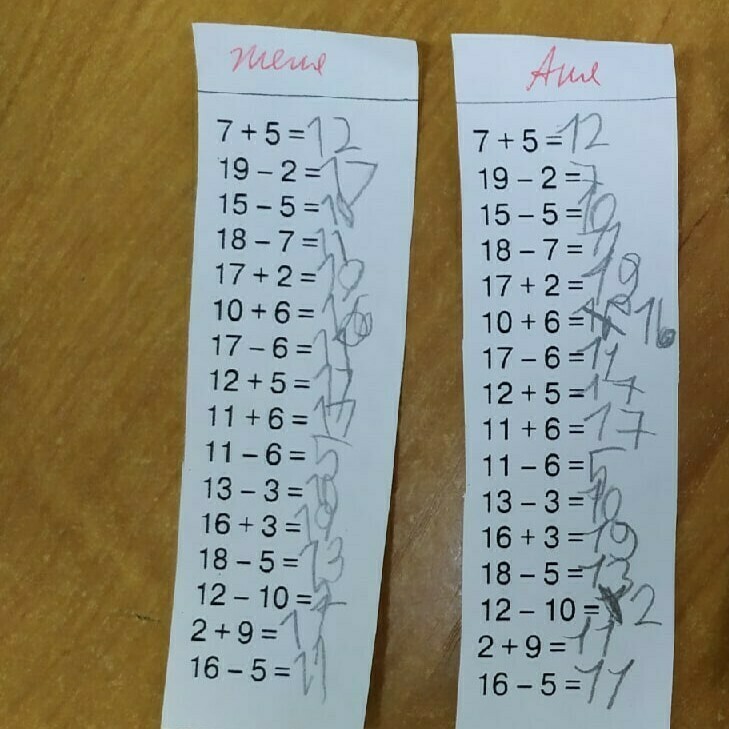 теле
7 + 5 = 12
19 – 2 = 17
15 – 5 = 10
18 – 7 = 11
17 + 2 = 19
10 + 6 = 16
17 – 6 = 11
12 + 5 = 17
11 + 6 = 17
11 – 6 = 5
13 – 3 = 10
16 + 3 = 19
18 – 5 = 13
12 – 10 =
2 + 9 = 11
16 – 5 = 11
Ане
7 + 5 = 12
19 – 2 = 7
15 – 5 = 10
18 – 7 = 11
17 + 2 = 19
10 + 6 = 16
17 – 6 = 11
12 + 5 = 17
11 + 6 = 17
11 – 6 = 5
13 – 3 = 10
16 + 3 = 19
18 – 5 = 13
12 – 10 = 2
2 + 9 = 11
16 – 5 = 11